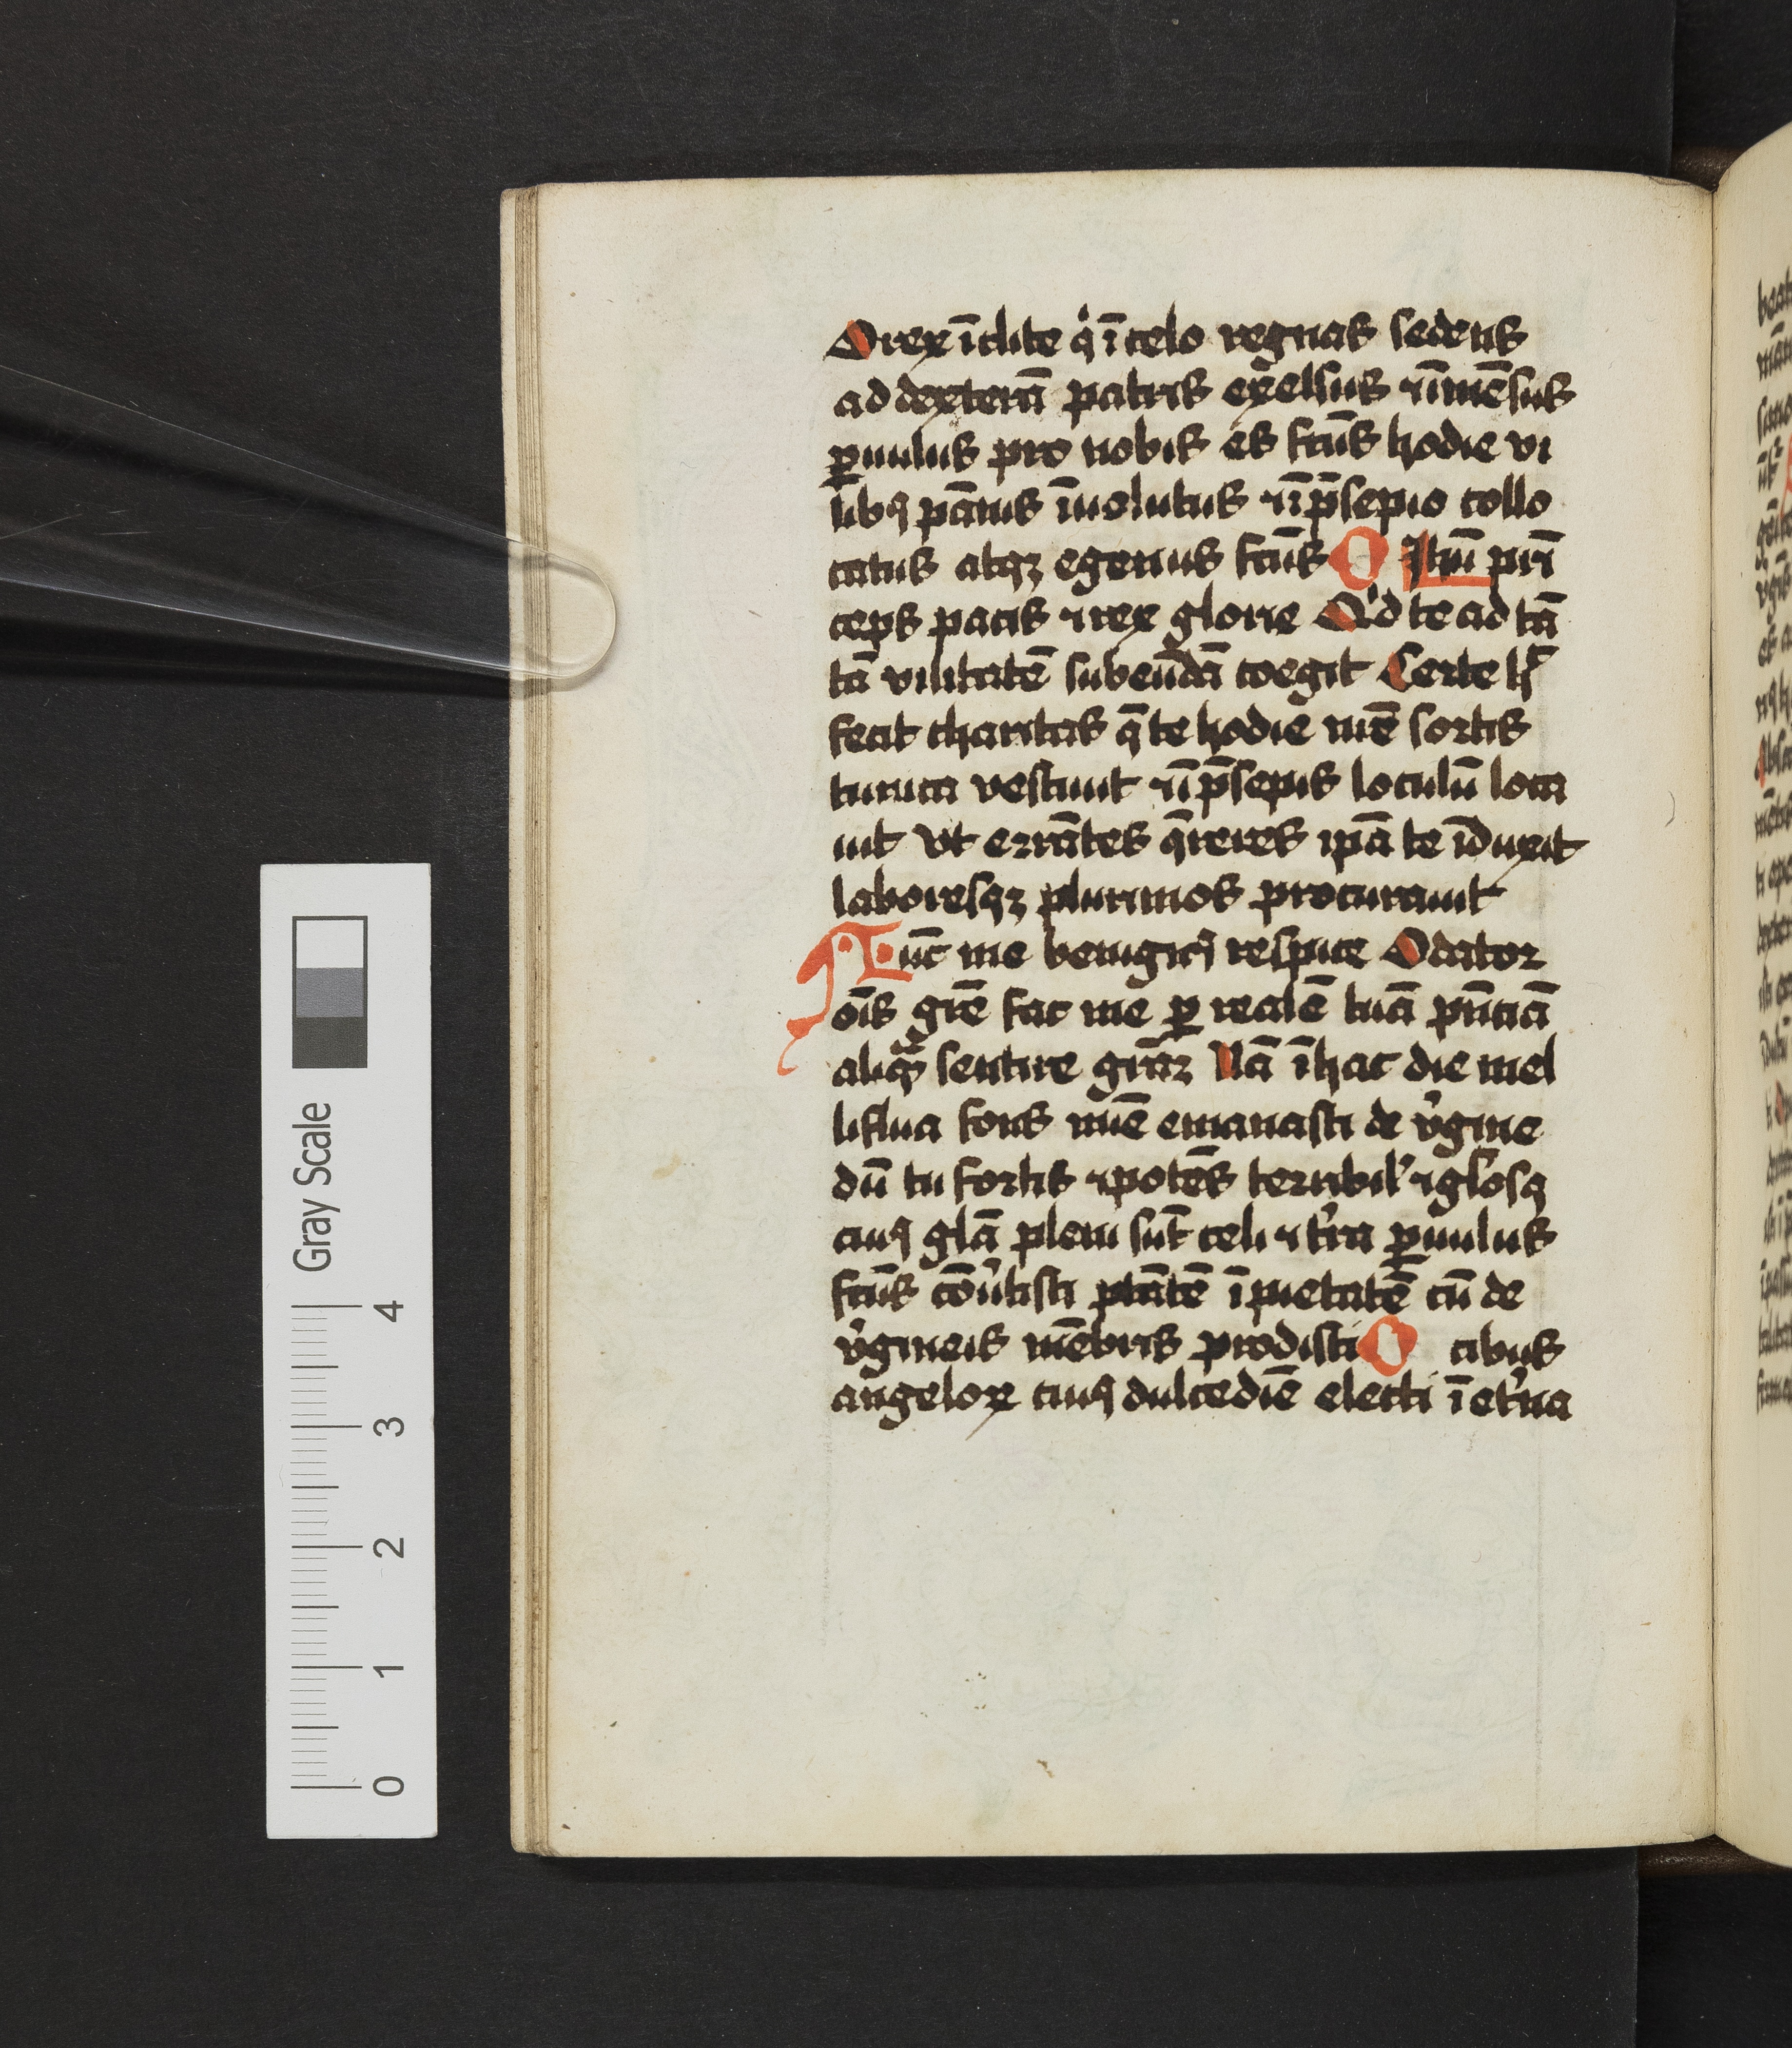 O rex īclite qͥ ī celo regnas sedens
ad dexterā patris excelsus ⁊ īmēsus
ꝑuulus pro nobis es fcūs hodie vi
libꝯ pānis īuolutus ⁊ ī p̄sepio collo
catus atqꝫ egenus fcūs O Ihū pri
ceps pacis ⁊ rex glorie Qͥd te ad tā
tā vilitatē subeūdā coegit Certe h̄
fecit charitas q̄ te hodie mee sortis
tunica vestiuit ⁊ ī p̄sepis loculū loca
uit Vt errātes q̄reres ipā te īduxit
laboresqꝫ plurimos procurauit
Nūc me benigꝯ respice O dator
oīs grē fac me ꝑ realē tuā pn̄ciā
aliqͣ sentire grāꝫ Nā ī hac die mel
liflua fons mīe emanasti de v̓gine
dū tu fortis ⁊ potēs terribil' ⁊ glosꝯ
cuiꝯ glā pleni sūt celi ⁊ t̓ra ꝑuulus
fcūs cōu̓tisti ptātē ī pietatē cū de
v̓gineis mēbris prodisti O cibus
angeloꝝ cuiꝯ dulcediē electi ī et̓na
Gray Scale
4
3
2
1
0